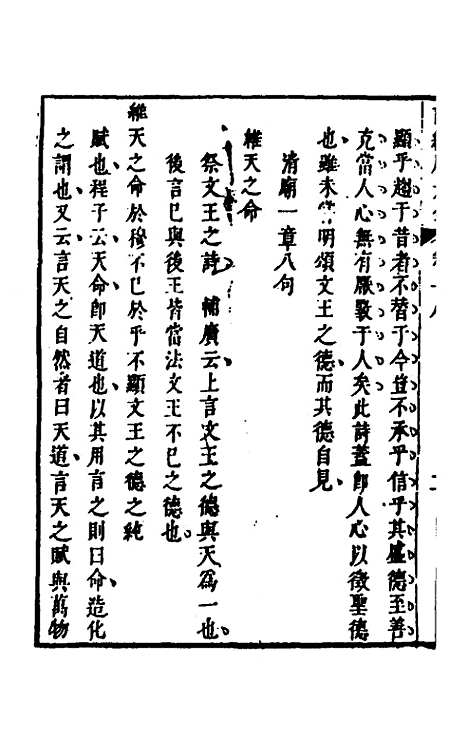 顯乎趨于昔者不替于今豈不承乎信乎其盛德至善
克當人心無有厭斁于人矣此詩蓋即人心以徵聖德
也雖未嘗明頌文王之德而其德自見
清廟一章八句
維天之命
祭文王之詩 輔廣云上言文王之德與天爲一也
後言已與後王皆當法文王不已之德也
維天之命於穆不已於乎不顯文王之德之純
賦也程子云天命卽天道也以其用言之則曰命造化
之謂也又云言天之自然者曰天道言天之賦與萬物